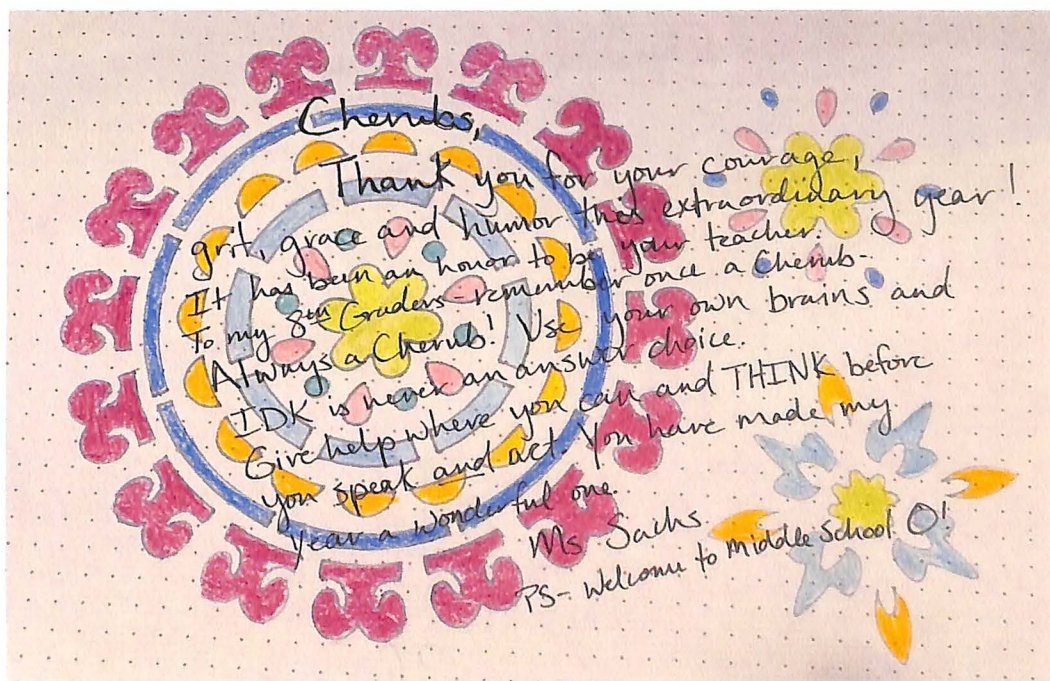 Cherubs,
Thank you for your courage,
grit, grace and humor this extraordinary year!
It has been an honor to be your teacher.
To my 8th Graders - remember once a Cherub -
Always a Cherub! Use your own brains and
IDK is never an answer choice.
Give help where you can and THINK before
you speak and act. You have made my
year a wonderful one.
Ms Sachs
PS - Welcome to Middle School O!